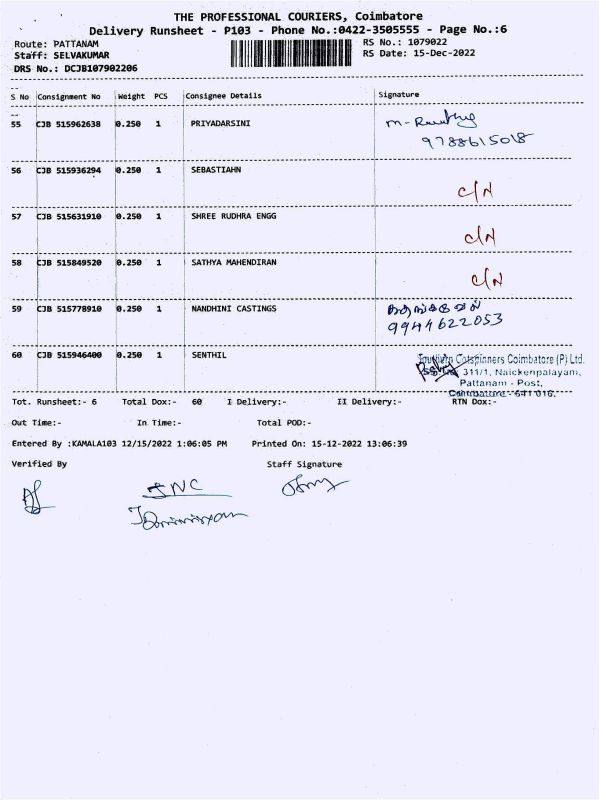 THE PROFESSIONAL COURIERS, Coimbatore
Delivery Runsheet - P103 - Phone No.:0422-3505555 - Page No.:6
Route: PATTANAM RS No.: 1079022
Staff: SELVAKUMAR RS Date: 15-Dec-2022
DRS No.: DCJB107902206
S No Consignment No Weight PCS Consignee Details Signature
55 CJB 515962638 0.250 1 PRIYADARSINI
9788615018
56 CJB 515936294 0.250 1 SEBASTIAHN C/N
57 CJB 515631910 0.250 1 SHREE RUDHRA ENGG C/N
58 CJB 515849520 0.250 1 SATHYA MAHENDIRAN C/N
59 CJB 515778910 0.250 1 NANDHINI CASTINGS
9944622053
60 CJB 515946400 0.250 1 SENTHIL
Southern Cotspinners Coimbatore (P) Ltd.
311/1, Naickenpalayam,
Pattanam - Post,
Coimbatore - 641 016.
Tot. Runsheet:- 6 Total Dox:- 60 I Delivery:- II Delivery:- RTN Dox:-
Out Time:- In Time:- Total POD:-
Entered By :KAMALA103 12/15/2022 1:06:05 PM Printed On: 15-12-2022 13:06:39
Verified By Staff Signature